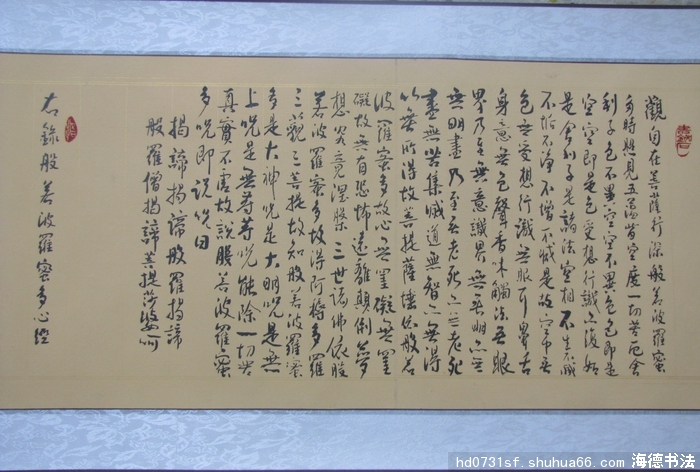 觀自在菩薩行深般若波羅蜜
多時照見五蘊皆空度一切苦厄舍
利子色不異空空不異色色即是
空空即是色受想行識亦復如
是舍利子是諸法空相不生不滅
不垢不淨不增不減是故空中無
色無受想行識無眼耳鼻舌
身意無色聲香味觸法無眼
界乃至無意識界無無明亦無
無明盡乃至無老死亦無老死
盡無苦集滅道無智亦無得
以無所得故菩提薩埵依般若
波羅蜜多故心無罣礙無罣
礙故無有恐怖遠離顛倒夢
想究竟涅槃三世諸佛依般
若波羅蜜多故得阿耨多羅
三藐三菩提故知般若波羅蜜
多是大神咒是大明咒是無
上咒是無等等咒能除一切苦
真實不虛故說般若波羅蜜
多咒即說咒曰
揭諦揭諦般羅揭諦
般羅僧揭諦菩提莎婆訶
右錄般若波羅蜜多心經
hd0731sf.shuhua66.com 海德书法